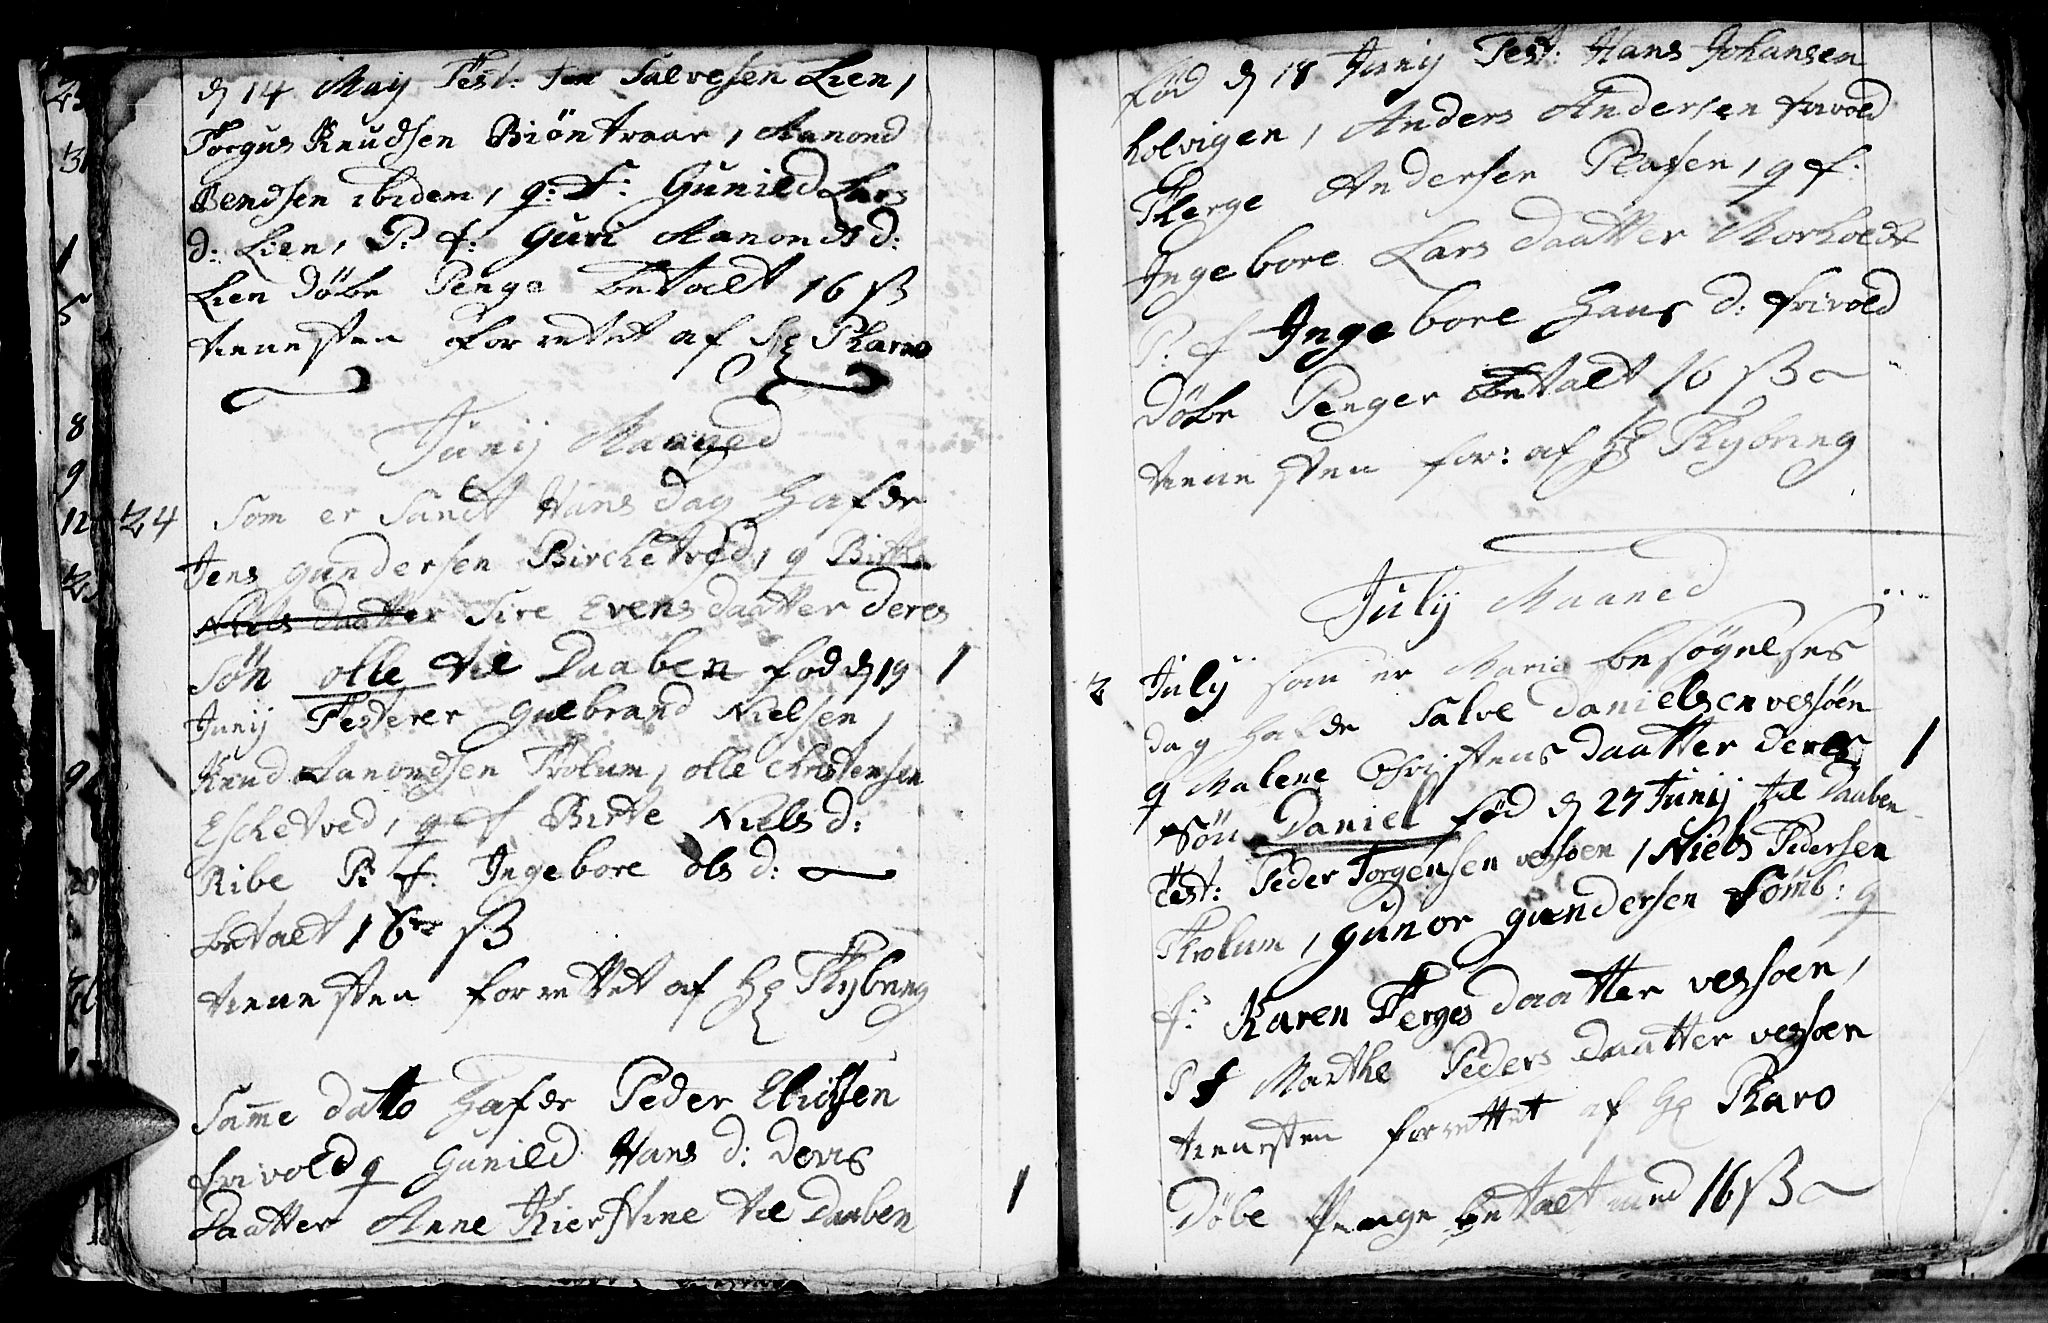 d 14 Maij Test: Jen Salvesen Lien,
Torgus Knudsen Biöntraar, Aanond
Bendsen ibidem, q: f: Gunild Lars
d: Lien, P: f: Guri Aanonds d:
Lien Döbe Penge betalt 16 sß
tienesten forrettet af Hr Pharo
Junij Maaned
24 Som er Sanct Hans dag hafde
Jens Gundersen Birchetved, q Birthe
Niels daatter Sire Evens daatter deres
Sön olle til Daaben fød d 19 1
Junij Testerer Gulbrand Nielsen,
Knud Aanondsen Trolum, olle Christensen
Eschetved, q f Birte Niels d:
Ribe P: f: Ingebore ols d:
betalt 16 sß
tienesten forrettet af Hr Thybring
Samme dato hafde Peder Elichsen
frivold q Gunild Hans d: deris
Daatter Anne Kierstine til Daaben 1
fød d 18 Junij Test: Hans Johansen
holvigen, Anders Andersen frivold
Therge Andersen Plasen, q f:
Ingebore Lars daatter Morholt
P: f Ingebore Hans d: frivold
Döbe Penger betalt 16 sß
tienesten for: af Hr Thybring
July Maaned
2 July som er Maria besøgelses
dag hafde Salve Danielsen vessøen
q Malene Christens daatter deres 1
Sön Daniel fød d 27 Junij til Daaben
Test: Peder Torgensen vessøen, Niels Pedersen
Trolum, Gunor Gundersen Sömb: q
f: Karen Terges daatter vessoen,
P f Marthe Peders daatter vessoen
tienesten forrettet af Hr Pharo
Döbe Penge betalt med 16 sß